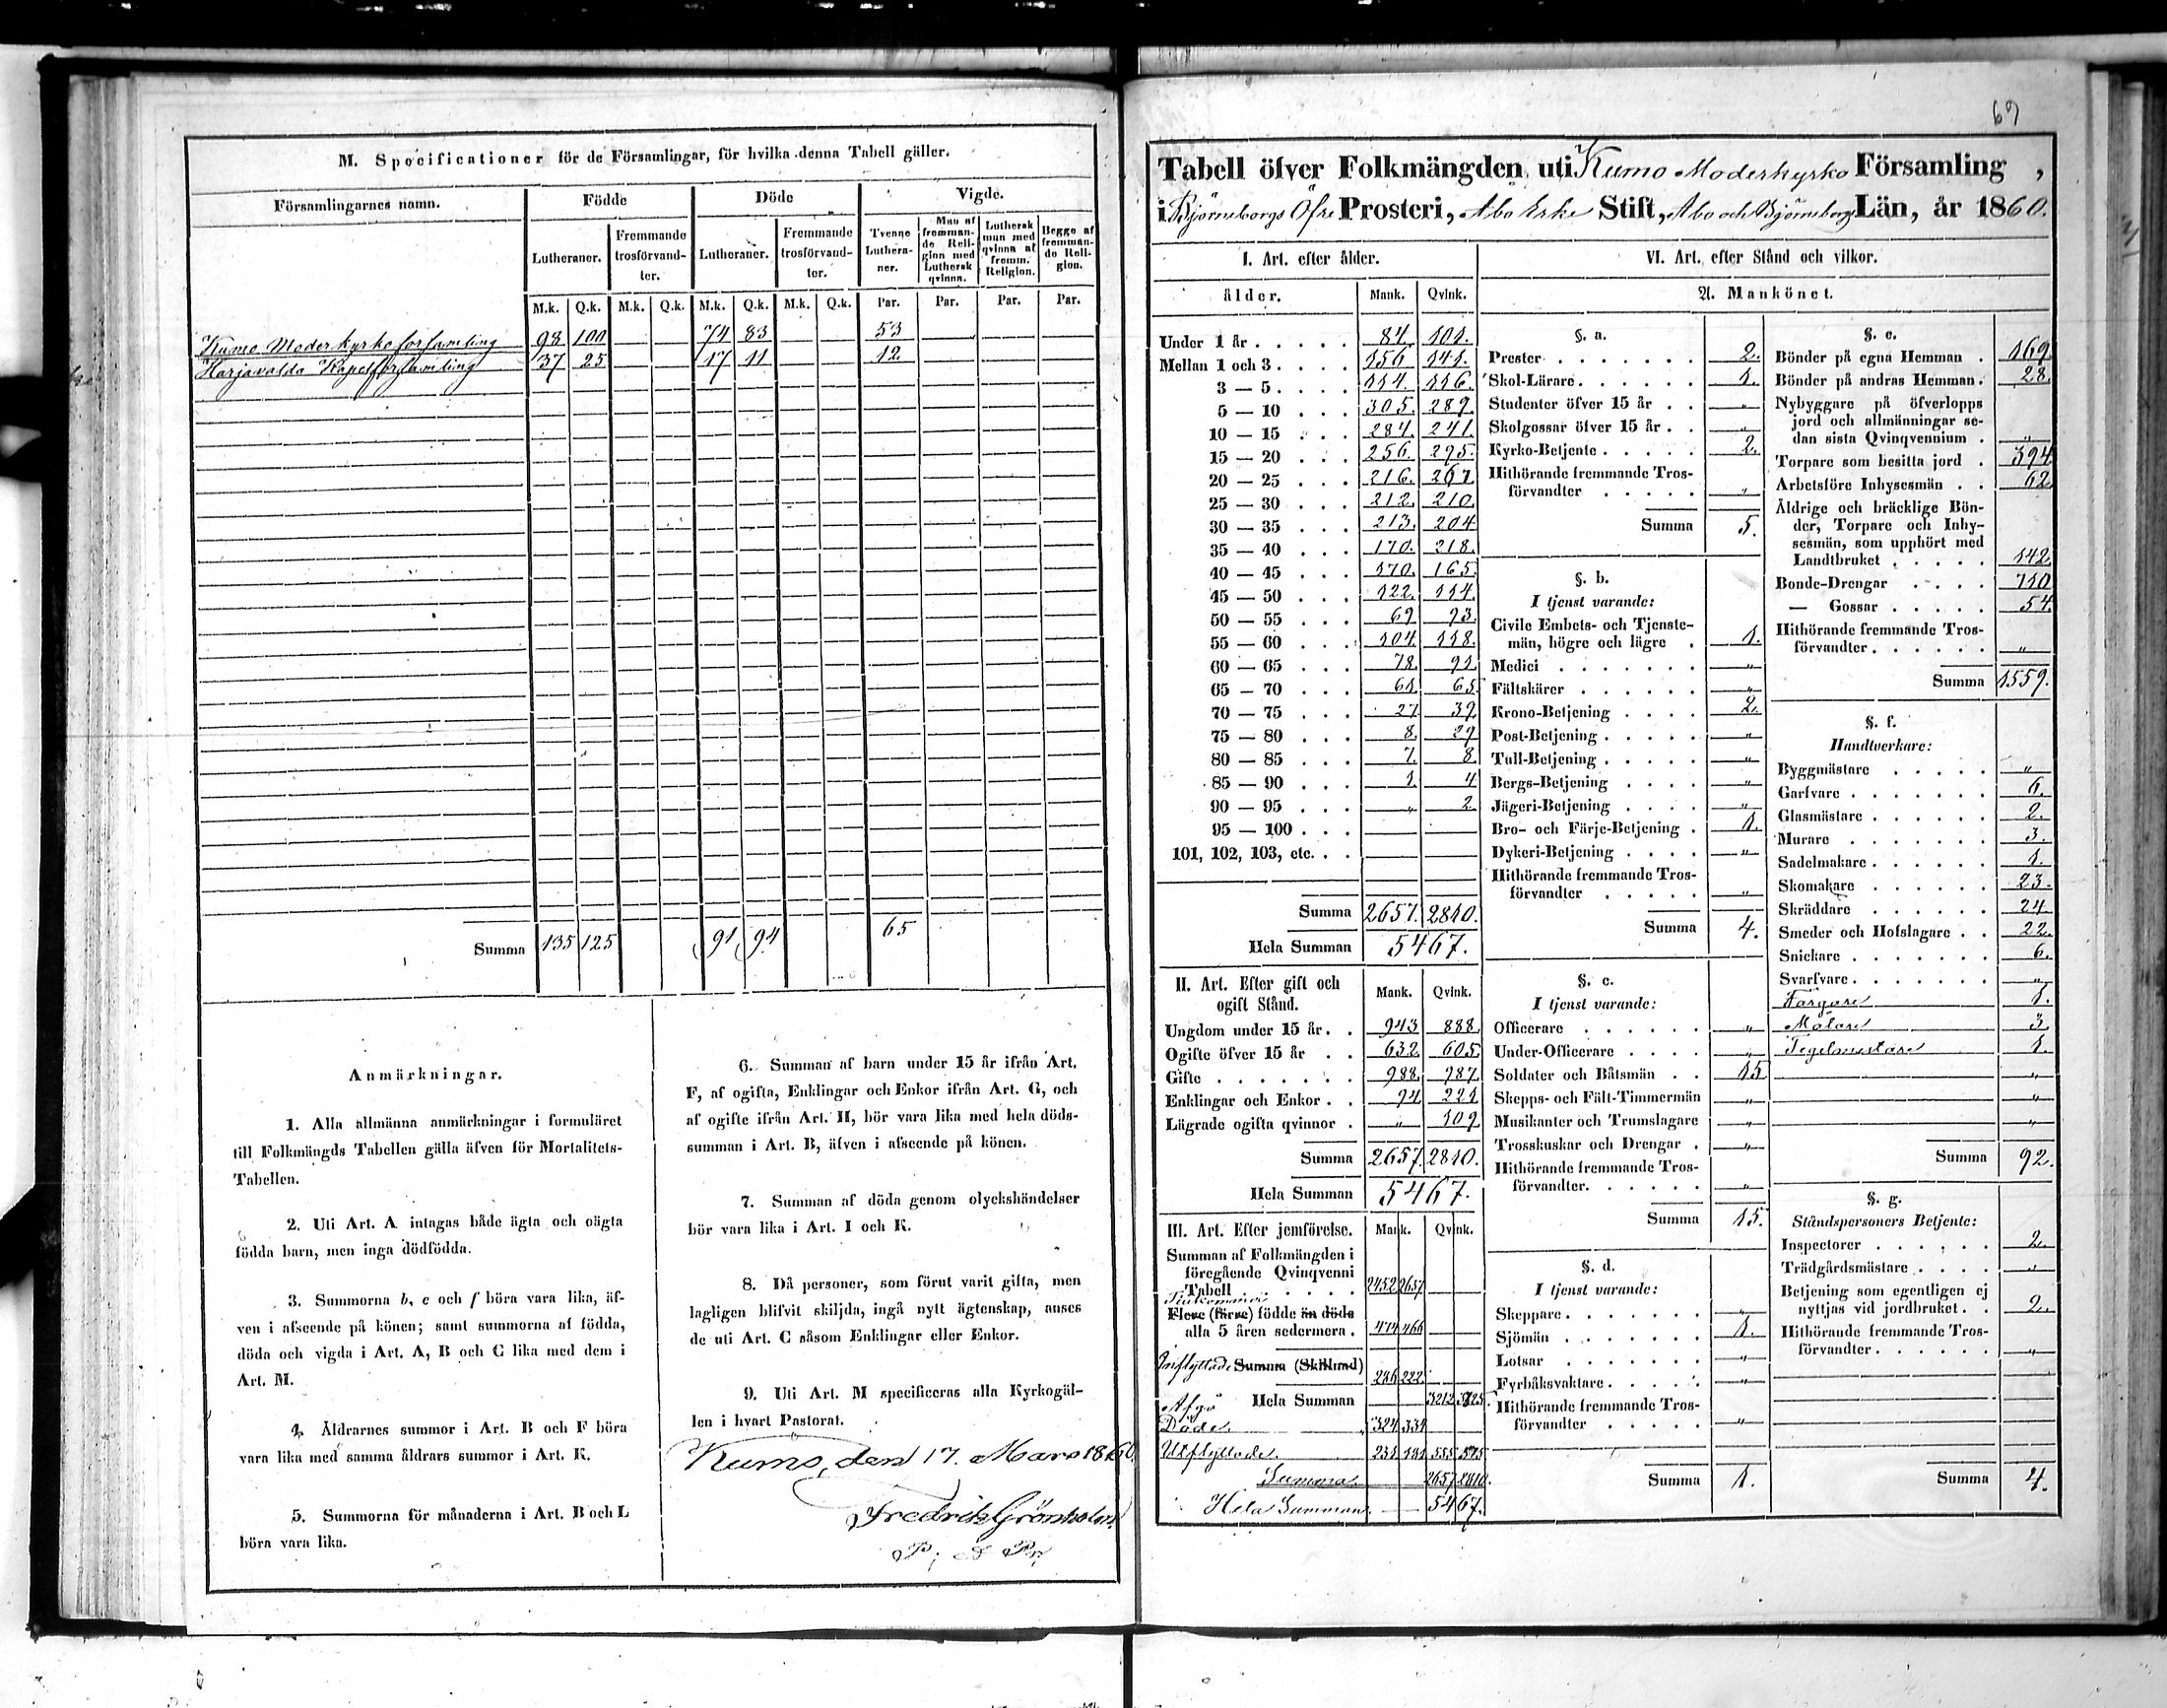 M. Specificationer för de Församlingar, för hvilka denna Tabell gäller.
Församlingarnes namn. Födde Döde Vigde.
Lutheraner. Fremmande trosförvandter. Lutheraner. Fremmande trosförvandter. Tvenne Lutheraner. Man af fremmande Religion med Luthersk qvinna. Luthersk man med qvinna af fremm. Religion. Begge af fremmande Religion.
M.k. Q.k. M.k. Q.k. M.k. Q.k. M.k. Q.k. Par. Par. Par. Par.
Kumo Moderkyrko församling 98 100 74 83 53
Harjavalda Kapellförsamling 37 25 17 11 12
Summa 135 125 91 94 65
Anmärkningar.
1. Alla allmänna anmärkningar i formuläret
till Folkmängds Tabellen gälla äfven för Mortalitets-
Tabellen.
2. Uti Art. A intagas både ägta och oägta
födda barn, men inga dödfödda.
3. Summorna b, e och f böra vara lika, äf-
ven i afseende på könen; samt summorna af födda,
döda och vigda i Art. A, B och C lika med dem i
Art. M.
4. Åldrarnes summor i Art. B och F böra
vara lika med samma åldrars summor i Art. K.
5. Summorna för månaderna i Art. B och L
böra vara lika.
6. Summan af barn under 15 år ifrån Art.
F, af ogifta, Enklingar och Enkor ifrån Art. G, och
af ogifte ifrån Art. H, bör vara lika med hela döds-
summan i Art. B, äfven i afseende på könen.
7. Summan af döda genom olyckshändelser
bör vara lika i Art. I och K.
8. Då personer, som förut varit gifta, men
lagligen blifvit skiljda, ingå nytt ägtenskap, anses
de uti Art. C såsom Enklingar eller Enkor.
9. Uti Art. M specificeras alla Kyrkogäl-
len i hvart Pastorat.
Kumo, den 17. Mars 1860.
Fredrik Grönholm
69
Tabell öfver Folkmängden uti Kumo Moderkyrko Församling,
i Björneborgs Öfre Prosteri, Åbo Erke Stift, Åbo och Björneborgs Län, år 1860.
I. Art. efter ålder.
ålder. Mank. Qvink.
Under 1 år 84. 101.
Mellan 1 och 3 156. 141.
3 — 5 114. 116.
5 — 10 305. 289.
10 — 15 284. 241.
15 — 20 256. 295.
20 — 25 216. 267.
25 — 30 212. 210.
30 — 35 213. 204
35 — 40 170. 218.
40 — 45 170. 165.
45 — 50 122. 114.
50 — 55 69. 93.
55 — 60 104. 118.
60 — 65 78. 91.
65 — 70 61. 65.
70 — 75 27. 39.
75 — 80 8. 29
80 — 85 7. 8.
85 — 90 1. 4
90 — 95 „ 2.
95 — 100
101, 102, 103, etc.
Summa 2657. 2810.
Hela Summan 5467.
II. Art. Efter gift och
ogift Stånd. Mank. Qvink.
Ungdom under 15 år 943 888.
Ogifte öfver 15 år 632. 605.
Gifte 988. 987.
Enklingar och Enkor 94 221.
Lägrade ogifta qvinnor „ 109.
Summa 2657. 2810.
Hela Summan 5467.
III. Art. Efter jemförelse. Mank. Qvink.
Summan af Folkmängden i
föregående Qvinqvenni
Tabell 2452 2657
Flere (färre) födde än döda
alla 5 åren sedermera. 414 466
Inflyttade Summa (Skillnad) 246 222
Hela Summan 3212
Afgå
Döde 324 334
Utflyttade 231 181 555 515
Summa 2657 2810.
Hela Summan 5467.
VI. Art. efter Stånd och vilkor.
A. Mankönet.
§. a.
Prester 2.
Skol-Lärare 1.
Studenter öfver 15 år „
Skolgossar öfver 15 år „
Kyrko-Betjente 2.
Hithörande fremmande Tros-
förvandter „
Summa 5.
§. b.
I tjenst varande:
Civile Embets- och Tjenste-
män, högre och lägre 1.
Medici „
Fältskärer „
Krono-Betjening 2.
Post-Betjening „
Tull-Betjening „
Bergs-Betjening „
Jägeri-Betjening „
Bro- och Färje-Betjening 1.
Dykeri-Betjening „
Hithörande fremmande Tros-
förvandter „
Summa 4.
§. c.
I tjenst varande:
Officerare „
Under-Officerare „
Soldater och Båtsmän 15
Skepps- och Fält-Timmermän „
Musikanter och Trumslagare „
Trosskuskar och Drengar „
Hithörande fremmande Tros-
förvandter. „
Summa 15.
§. d.
I tjenst varande:
Skeppare „
Sjömän 1.
Lotsar „
Fyrbåksvaktare „
Hithörande fremmande Tros-
förvandter „
Summa 1.
§. e.
Bönder på egna Hemman 169.
Bönder på andras Hemman 28.
Nybyggare på öfverlopps
jord och allmänningar se-
dan sista Qvinqvennium „
Torpare som besitta jord 394
Arbetsföre Inhysesmän 62
Åldrige och bräcklige Bön-
der, Torpare och Inhy-
sesmän, som upphört med
Landtbruket 142.
Bonde-Drengar 710
— Gossar 54.
Hithörande fremmande Tros-
förvandter „
Summa 1559.
§. f.
Handtverkare:
Byggmästare „
Garfvare 6.
Glasmästare 2.
Murare 3.
Sadelmakare 1.
Skomakare 23.
Skräddare 24.
Smeder och Hofslagare 22.
Snickare 6.
Svarfvare „
Färgare 1.
Målare 3.
Tegelmästare 1.
„
„
„
Summa 92.
§. g.
Ståndspersoners Betjente:
Inspectorer 2.
Trädgårdsmästare „
Betjening som egentligen ej
nyttjas vid jordbruket 2.
Hithörande fremmande Tros-
förvandter „
Summa 4.